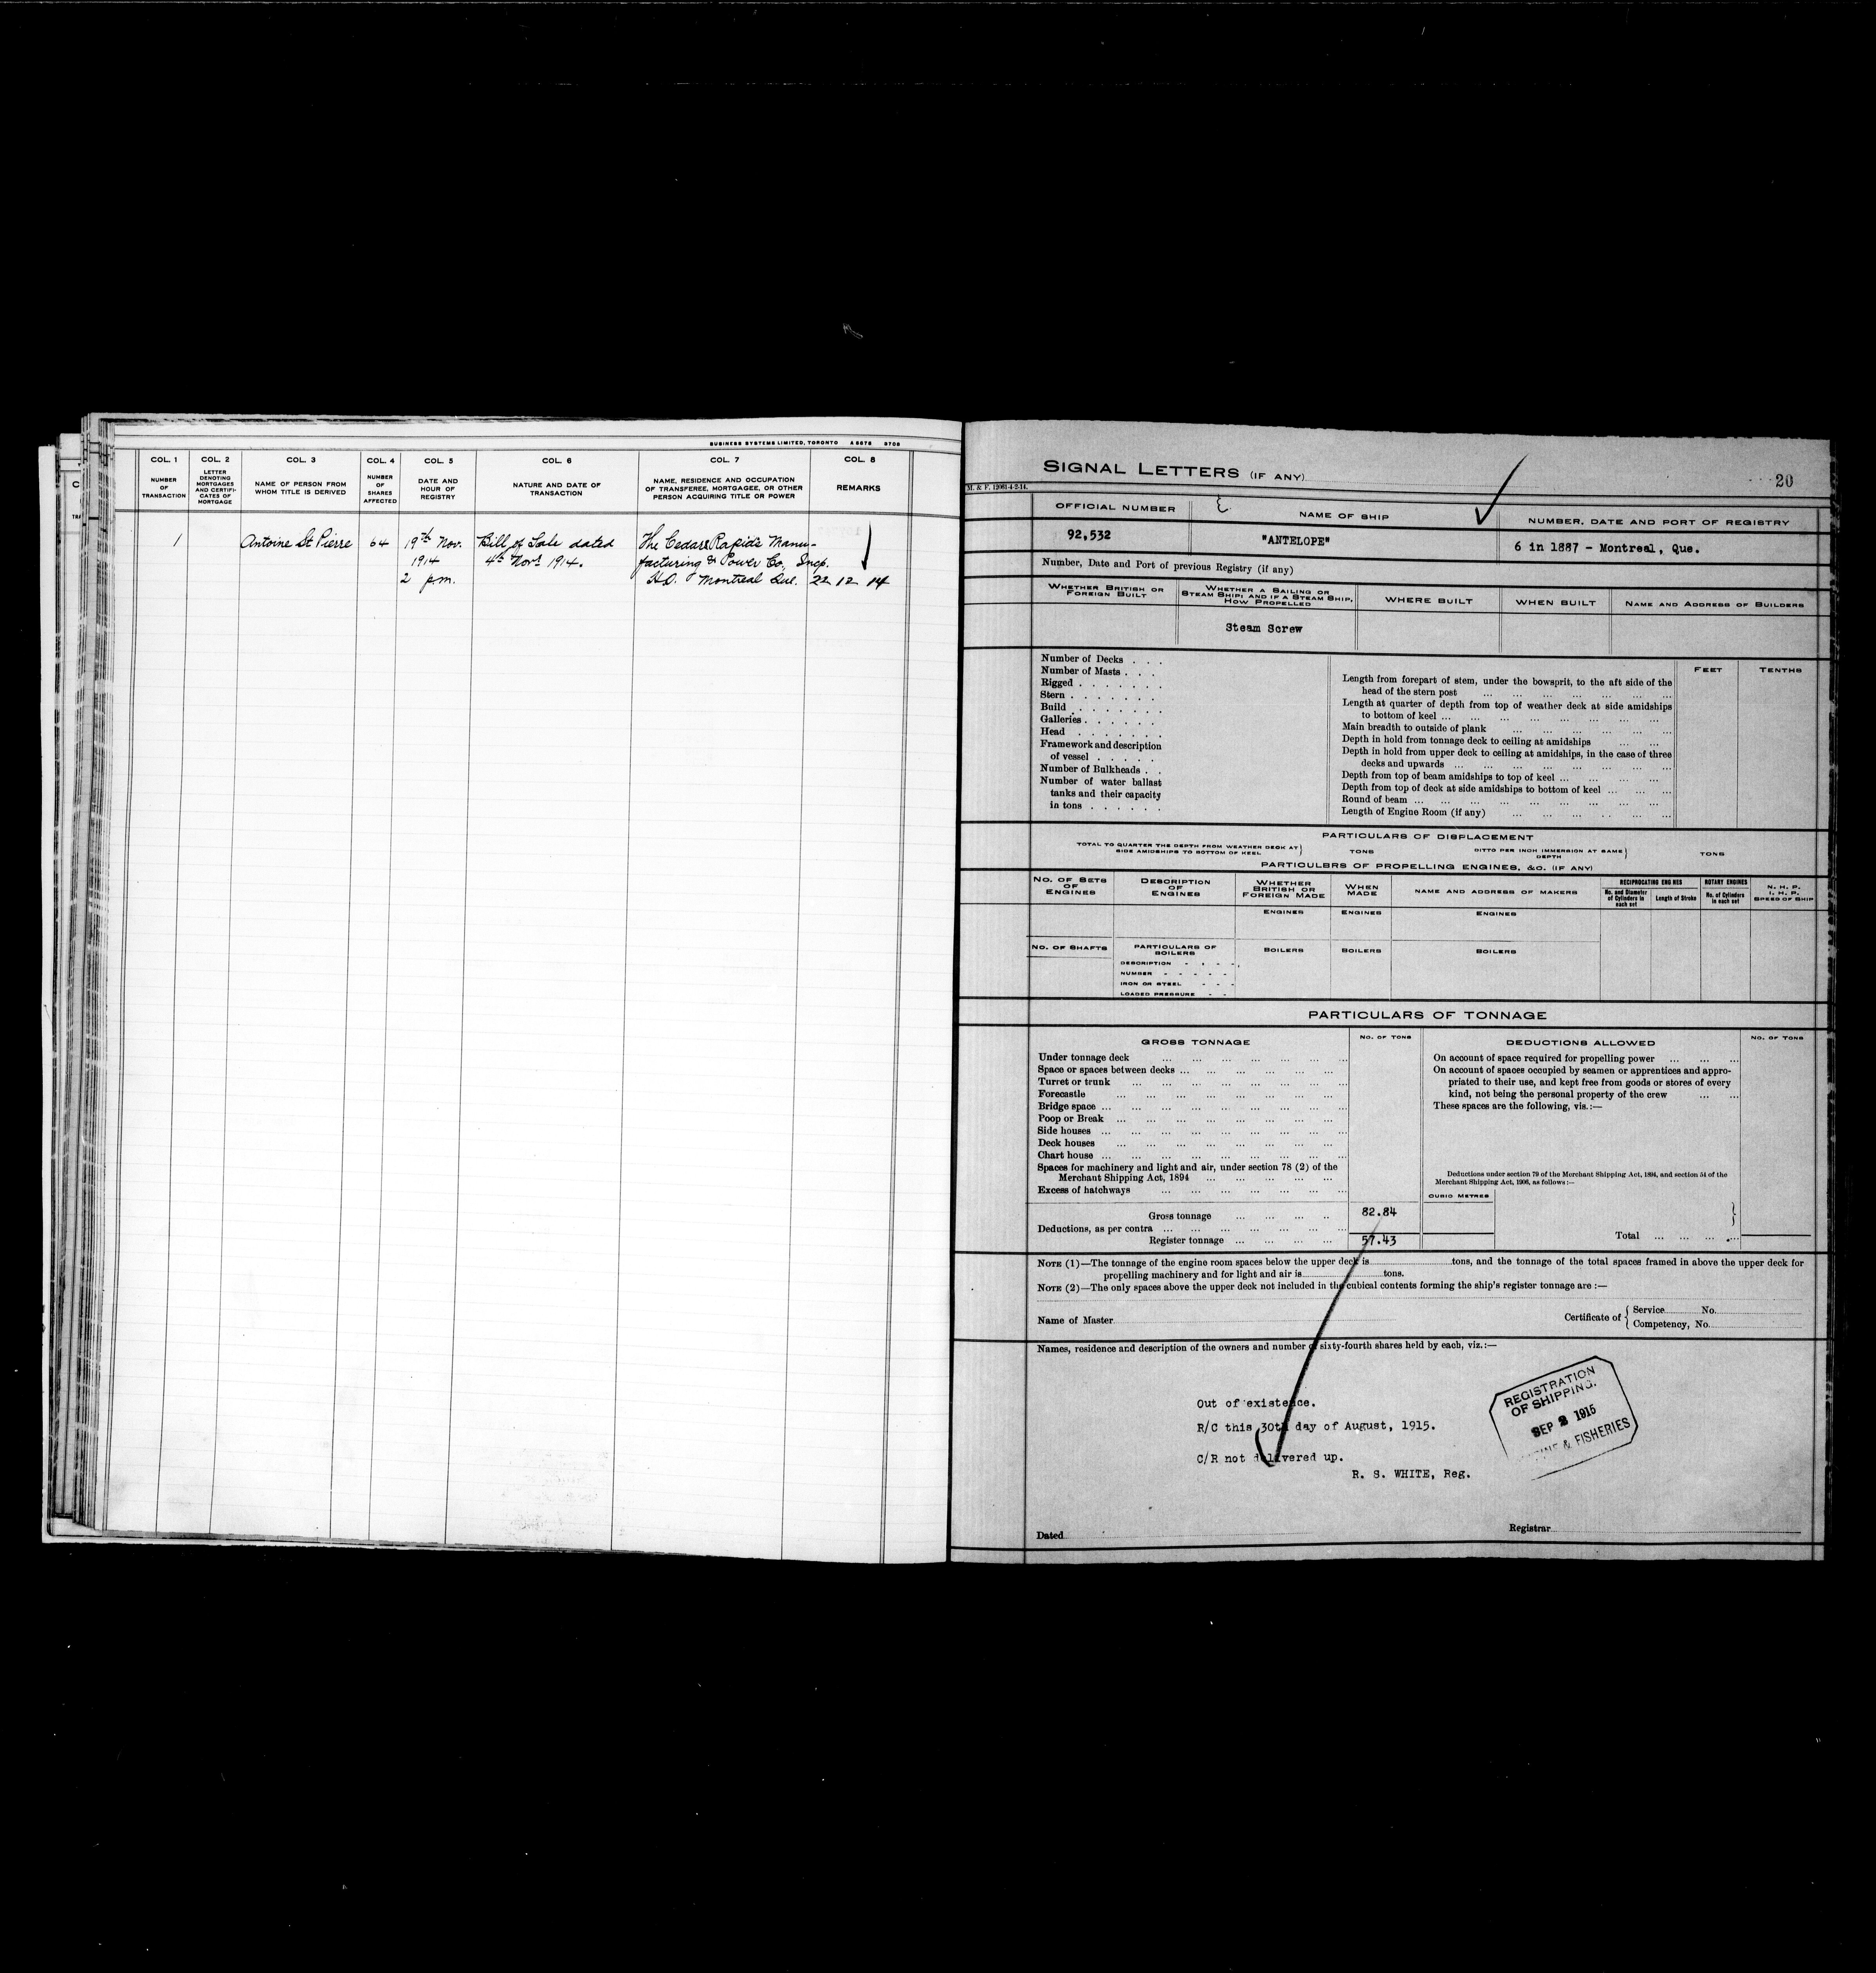 BUSINESS SYSTEMS LIMITED, TORONTO A 5676 5709
COL. 1 COL. 2 COL. 3 COL. 4 COL. 5 COL. 6 COL. 7 COL. 8
NUMBER OF TRANSACTION
LETTER DENOTING MORTGAGES AND CERTIFI- CATES OF MORTGAGE
NAME OF PERSON FROM WHOM TITLE IS DERIVED
NUMBER OF SHARES AFFECTED
DATE AND HOUR OF REGISTRY
NATURE AND DATE OF TRANSACTION
NAME, RESIDENCE AND OCCUPATION OF TRANSFEREE, MORTGAGEE, OR OTHER PERSON ACQUIRING TITLE OR POWER
REMARKS
1 Antoine St Pierre 64 19th Nov. Bill of Sale dated The Cedars Rapids Manu-
1914 4th Novr 1914. facturing & Power Co, Incp.
2 pm. H.O. Montreal Que. 22 12 14
SIGNAL LETTERS (IF ANY)
20
M. & F. 12061-4-2-14.
OFFICIAL NUMBER NAME OF SHIP NUMBER, DATE AND PORT OF REGISTRY
92,532 "ANTELOPE" 6 in 1887 - Montreal, Que.
Number, Date and Port of previous Registry (if any)
WHETHER BRITISH OR FOREIGN BUILT
WHETHER A SAILING OR STEAM SHIP; AND IF A STEAM SHIP, HOW PROPELLED
WHERE BUILT WHEN BUILT NAME AND ADDRESS OF BUILDERS
Steam Screw
FEET TENTHS
Number of Decks . . .
Number of Masts . . .
Rigged . . . . . . .
Stern . . . . . . .
Build . . . . . . .
Galleries . . . . . .
Head . . . . . . .
Framework and description
of vessel . . . . .
Number of Bulkheads . .
Number of water ballast
tanks and their capacity
in tons . . . . . .
Length from forepart of stem, under the bowsprit, to the aft side of the
head of the stern post
Length at quarter of depth from top of weather deck at side amidships
to bottom of keel
Main breadth to outside of plank
Depth in hold from tonnage deck to ceiling at amidships
Depth in hold from upper deck to ceiling at amidships, in the case of three
decks and upwards
Depth from top of beam amidships to top of keel
Depth from top of deck at side amidships to bottom of keel
Round of beam
Length of Engine Room (if any)
PARTICULARS OF DISPLACEMENT
TOTAL TO QUARTER THE DEPTH FROM WEATHER DECK AT SIDE AMIDSHIPS TO BOTTOM OF KEEL } TONS DITTO PER INCH IMMERSION AT SAME DEPTH } TONS
PARTICULBRS OF PROPELLING ENGINES, &O. (IF ANY)
NO. OF SETS OF ENGINES
DESCRIPTION OF ENGINES
WHETHER BRITISH OR FOREIGN MADE
WHEN MADE
NAME AND ADDRESS OF MAKERS
RECIPROCATING ENGINES
No. and Diameter of Cylinders in each set
Length of Stroke
ROTARY ENGINES
No. of Cylinders in each set
N. H. P.
I. H. P.
SPEED OF SHIP
ENGINES ENGINES ENGINES
NO. OF SHAFTS PARTICULARS OF BOILERS BOILERS BOILERS BOILERS
DESCRIPTION - - - -
NUMBER - - - - -
IRON OR STEEL - - -
LOADED PRESSURE - -
PARTICULARS OF TONNAGE
GROSS TONNAGE NO. OF TONS DEDUCTIONS ALLOWED NO. OF TONS
Under tonnage deck
Space or spaces between decks
Turret or trunk
Forecastle
Bridge space
Poop or Break
Side houses
Deck houses
Chart house
Spaces for machinery and light and air, under section 78 (2) of the
Merchant Shipping Act, 1894
Excess of hatchways
Gross tonnage 82.84
Deductions, as per contra
Register tonnage 57.43
On account of space required for propelling power
On account of spaces occupied by seamen or apprentices and appro-
priated to their use, and kept free from goods or stores of every
kind, not being the personal property of the crew
These spaces are the following, vis.:—
Deductions under section 79 of the Merchant Shipping Act, 1894, and section 54 of the
Merchant Shipping Act, 1906, as follows:—
CUBIC METRES
Total
NOTE (1)—The tonnage of the engine room spaces below the upper deck is tons, and the tonnage of the total spaces framed in above the upper deck for
propelling machinery and for light and air is tons.
NOTE (2)—The only spaces above the upper deck not included in the cubical contents forming the ship's register tonnage are :—
Name of Master Certificate of { Service No.
Competency, No.
Names, residence and description of the owners and number of sixty-fourth shares held by each, viz.:—
Out of existence.
R/C this 30th day of August, 1915.
C/R not delivered up.
R. S. WHITE, Reg.
REGISTRATION
OF SHIPPING.
SEP 2 1915
& FISHERIES
Dated Registrar